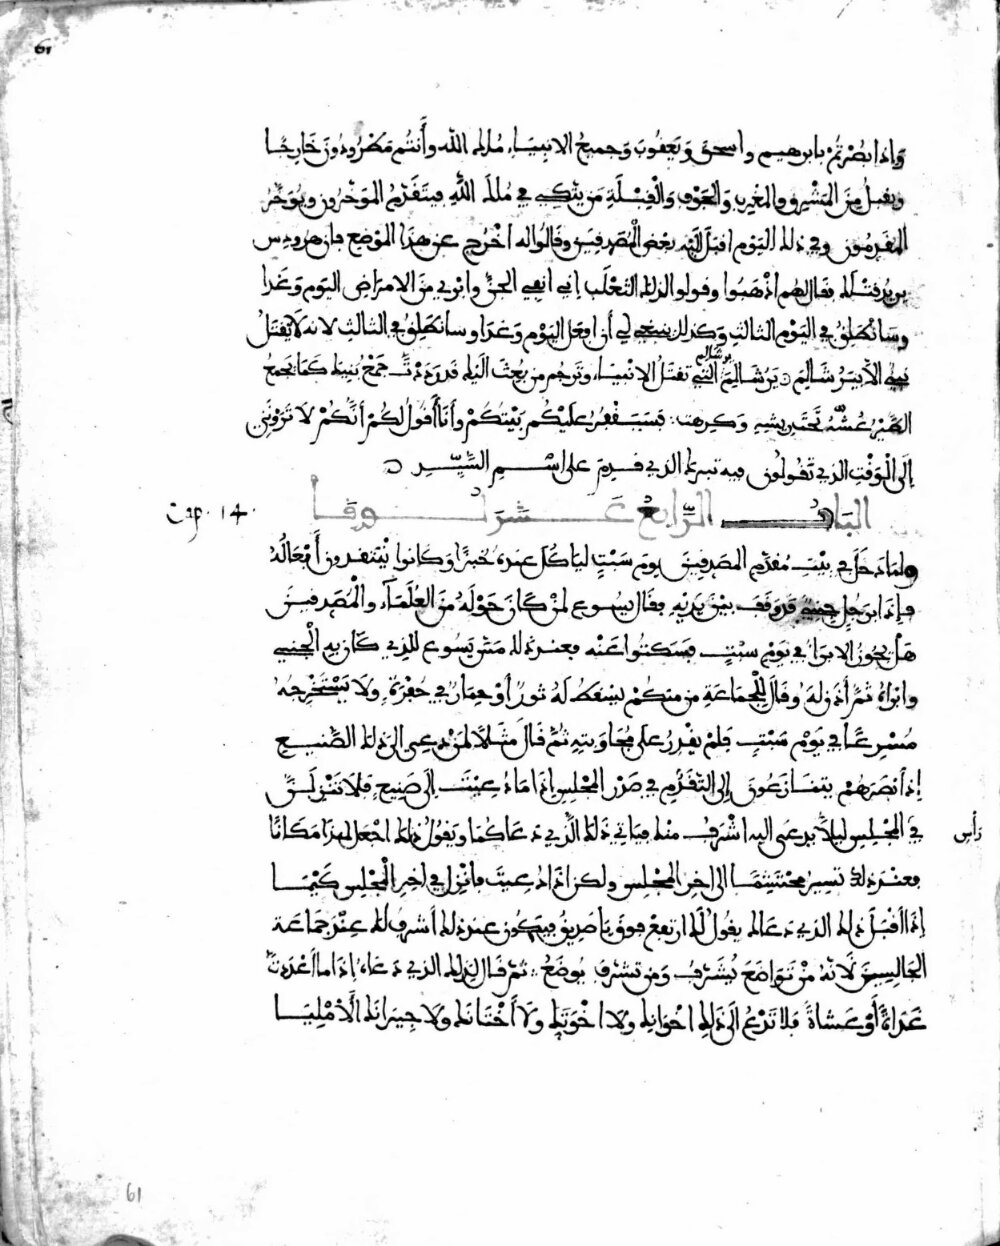 61
واذا بصرتم بابرهيم واسحق ويعقوب وجميع الانبياء ملك الله وأنتم مطرودون خارجا
ويقبل من المشرق والمغرب والجوف والقبلة من يتكي في ملك الله فيتقدم الموخرون ويوخر
المقدمون وفي ذلك اليوم اقبل إليه بعض المصدقين وقالوا له اخرج عن هذا الموضع فان هرودس
يريد قتلك فقال لهم اذهبوا وقولوا لذلك الثعلب إني أنفي الجن وابري من الامراض اليوم وغدا
وسانطلق في اليوم الثالث وكذلك ينبغي لي أن افعل اليوم وغدا وسانطلق في الثالث لانه لا يقتل
نبي الا بيرشالم يرشالم يرشالم التي تقتل الانبياء وترجم من بعث اليك قد وددت جمع بنيك كما يجمع
الطير عشه تحت ريشه وكرهت فسيقفر عليكم بيتكم وأنا أقول لكم أنكم لا تروني
إلى الوقت الذي تقولون فيه تبرك الذي قدم على اسم السيد
الباب الرابع عشر لوقا
Cap. 14.
ولما دخل في بيت مقدم المصدقين يوم سبت لياكل عنده خبزا وكانوا ينتقدون أفعاله
فإذا برجل حبني قد وقف بين يديه فقال يسوع لمن كان حوله من العلماء والمصدقين
هل يجوز الابرا في يوم سبت فسكتوا عنه فعند ذلك مس يسوع للذي كان به الحبني
وابراه ثم أذن له وقال للجماعة من منكم يسقط له ثور أو حمار في حفرة ولا يستخرجه
مسرعا في يوم سبت فلم يقدر على مجاوبته ثم قال مثلا لمن دعي الى ذلك الصنيع
إذ أبصرهم يتنازعون إلى التقدم في صدر المجلس اذا ما دعيت إلى صنيع فلا تنزلن
في المجلس ليلا يدعى اليه اشرف منك فياتي ذلك الذي دعاكما ويقول لك اجعل لهذا مكانا
رأس
فعند ذلك تسير محتشما الى اخر المجلس ولكن اذا دعيت فانزل في اخر المجلس كيما
إذا أقبل ذلك الذي دعاك يقول لك ارتفع فوق يا صديق فيكون عند ذلك أشرف لك عند جماعة
الجالسين لأنه من تواضع يشرف ومن تشرف يوضع ثم قال لذلك الذي دعاه إذا ما أعددت
غداة أو عشاة فلا تدع الى ذلك اخوانك ولا اخوتك ولا أختانك ولا جيرانك الأملياء
61